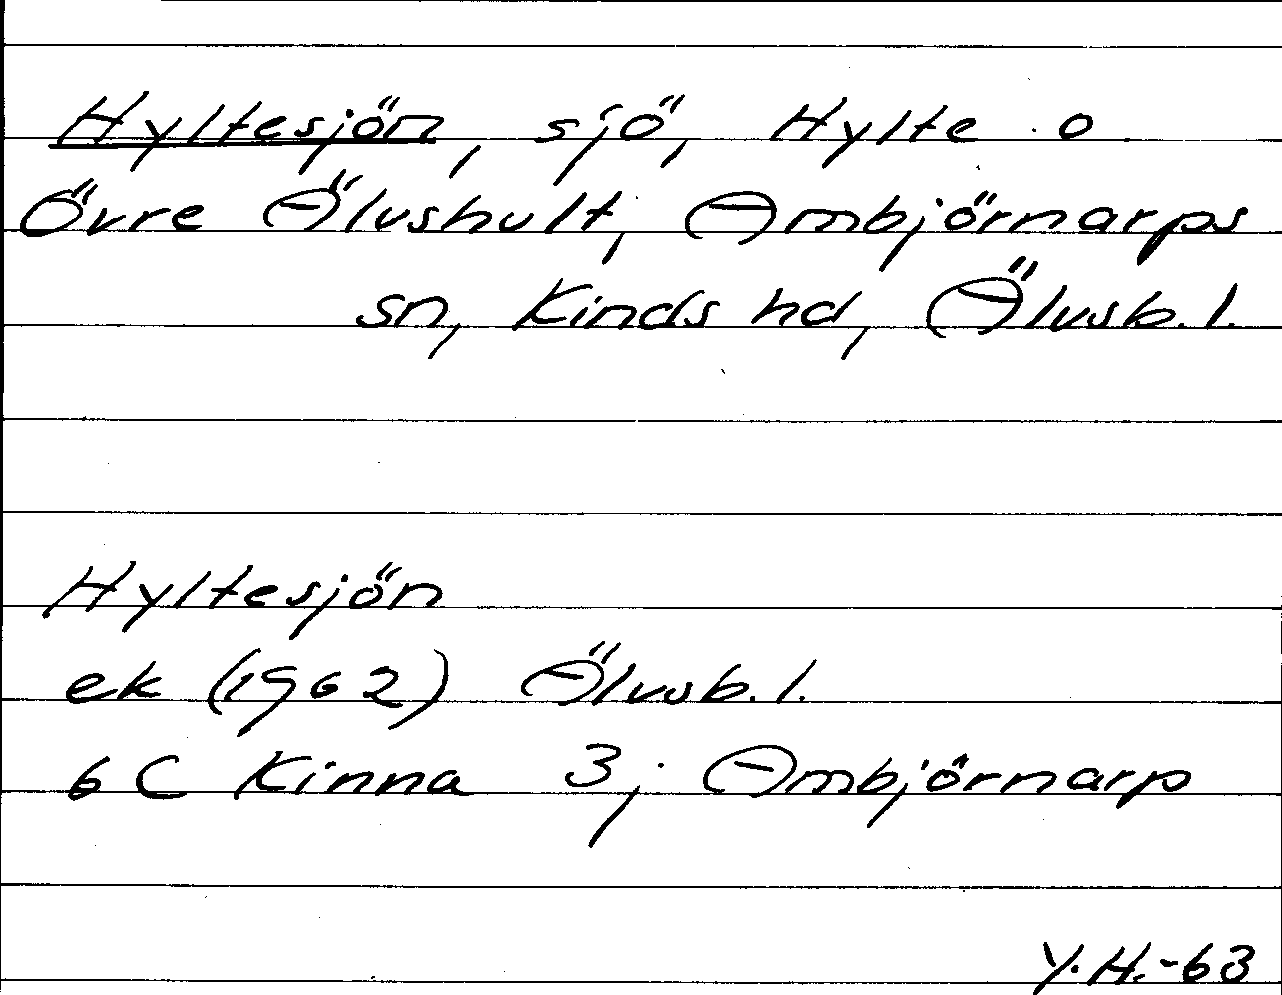 Hyltesjön, sjö, Hylte o
Övre Älvshult, Ambjörnarps
sn, Kinds hd, Älvsb. l.
Hyltesjön
ek (1962) Älvsb. l.
6 C Kinna 3; Ambjörnarp
Y.H.-63